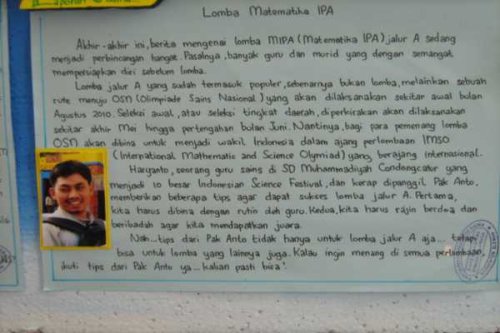 Lomba Matematika IPA
Akhir-akhir ini, berita mengenai lomba MIPA (Matematika IPA) jalur A sedang
menjadi perbincangan hangat. Pasalnya, banyak guru dan murid yang dengan semangat
mempersiapkan diri sebelum lomba.
Lomba jalur A yang sudah termasuk populer, sebenarnya bukan lomba, melainkan sebuah
rute menuju OSN (Olimpiade Sains Nasional) yang akan dilaksanakan sekitar awal bulan
Agustus 2010. Seleksi awal, atau seleksi tingkat daerah, diperkirakan akan dilaksanakan
sekitar akhir Mei hingga pertengahan bulan Juni. Nantinya, bagi para pemenang lomba
OSN akan dibina untuk menjadi wakil Indonesia dalam ajang perlombaan IMSO
(International Mathematic and Science Olymiad) yang berajang internasional.
Haryanto, seorang guru sains di SD Muhammadiyah Condongcatur yang
menjadi 10 besar Indonesian Science Festival, dan kerap dipanggil Pak Anto,
memberikan beberapa tips agar dapat sukses lomba jalur A. Pertama,
kita harus dibina dengan rutin oleh guru. Kedua, kita harus rajin berdoa dan
beribadah agar kita mendapatkan juara.
Nah... tips dari Pak Anto tidak hanya untuk lomba jalur A aja... tetapi
bisa untuk lomba yang lainnya juga. Kalau ingin menang di semua perlombaan,
ikuti tips dari Pak Anto ya... kalian pasti bisa!